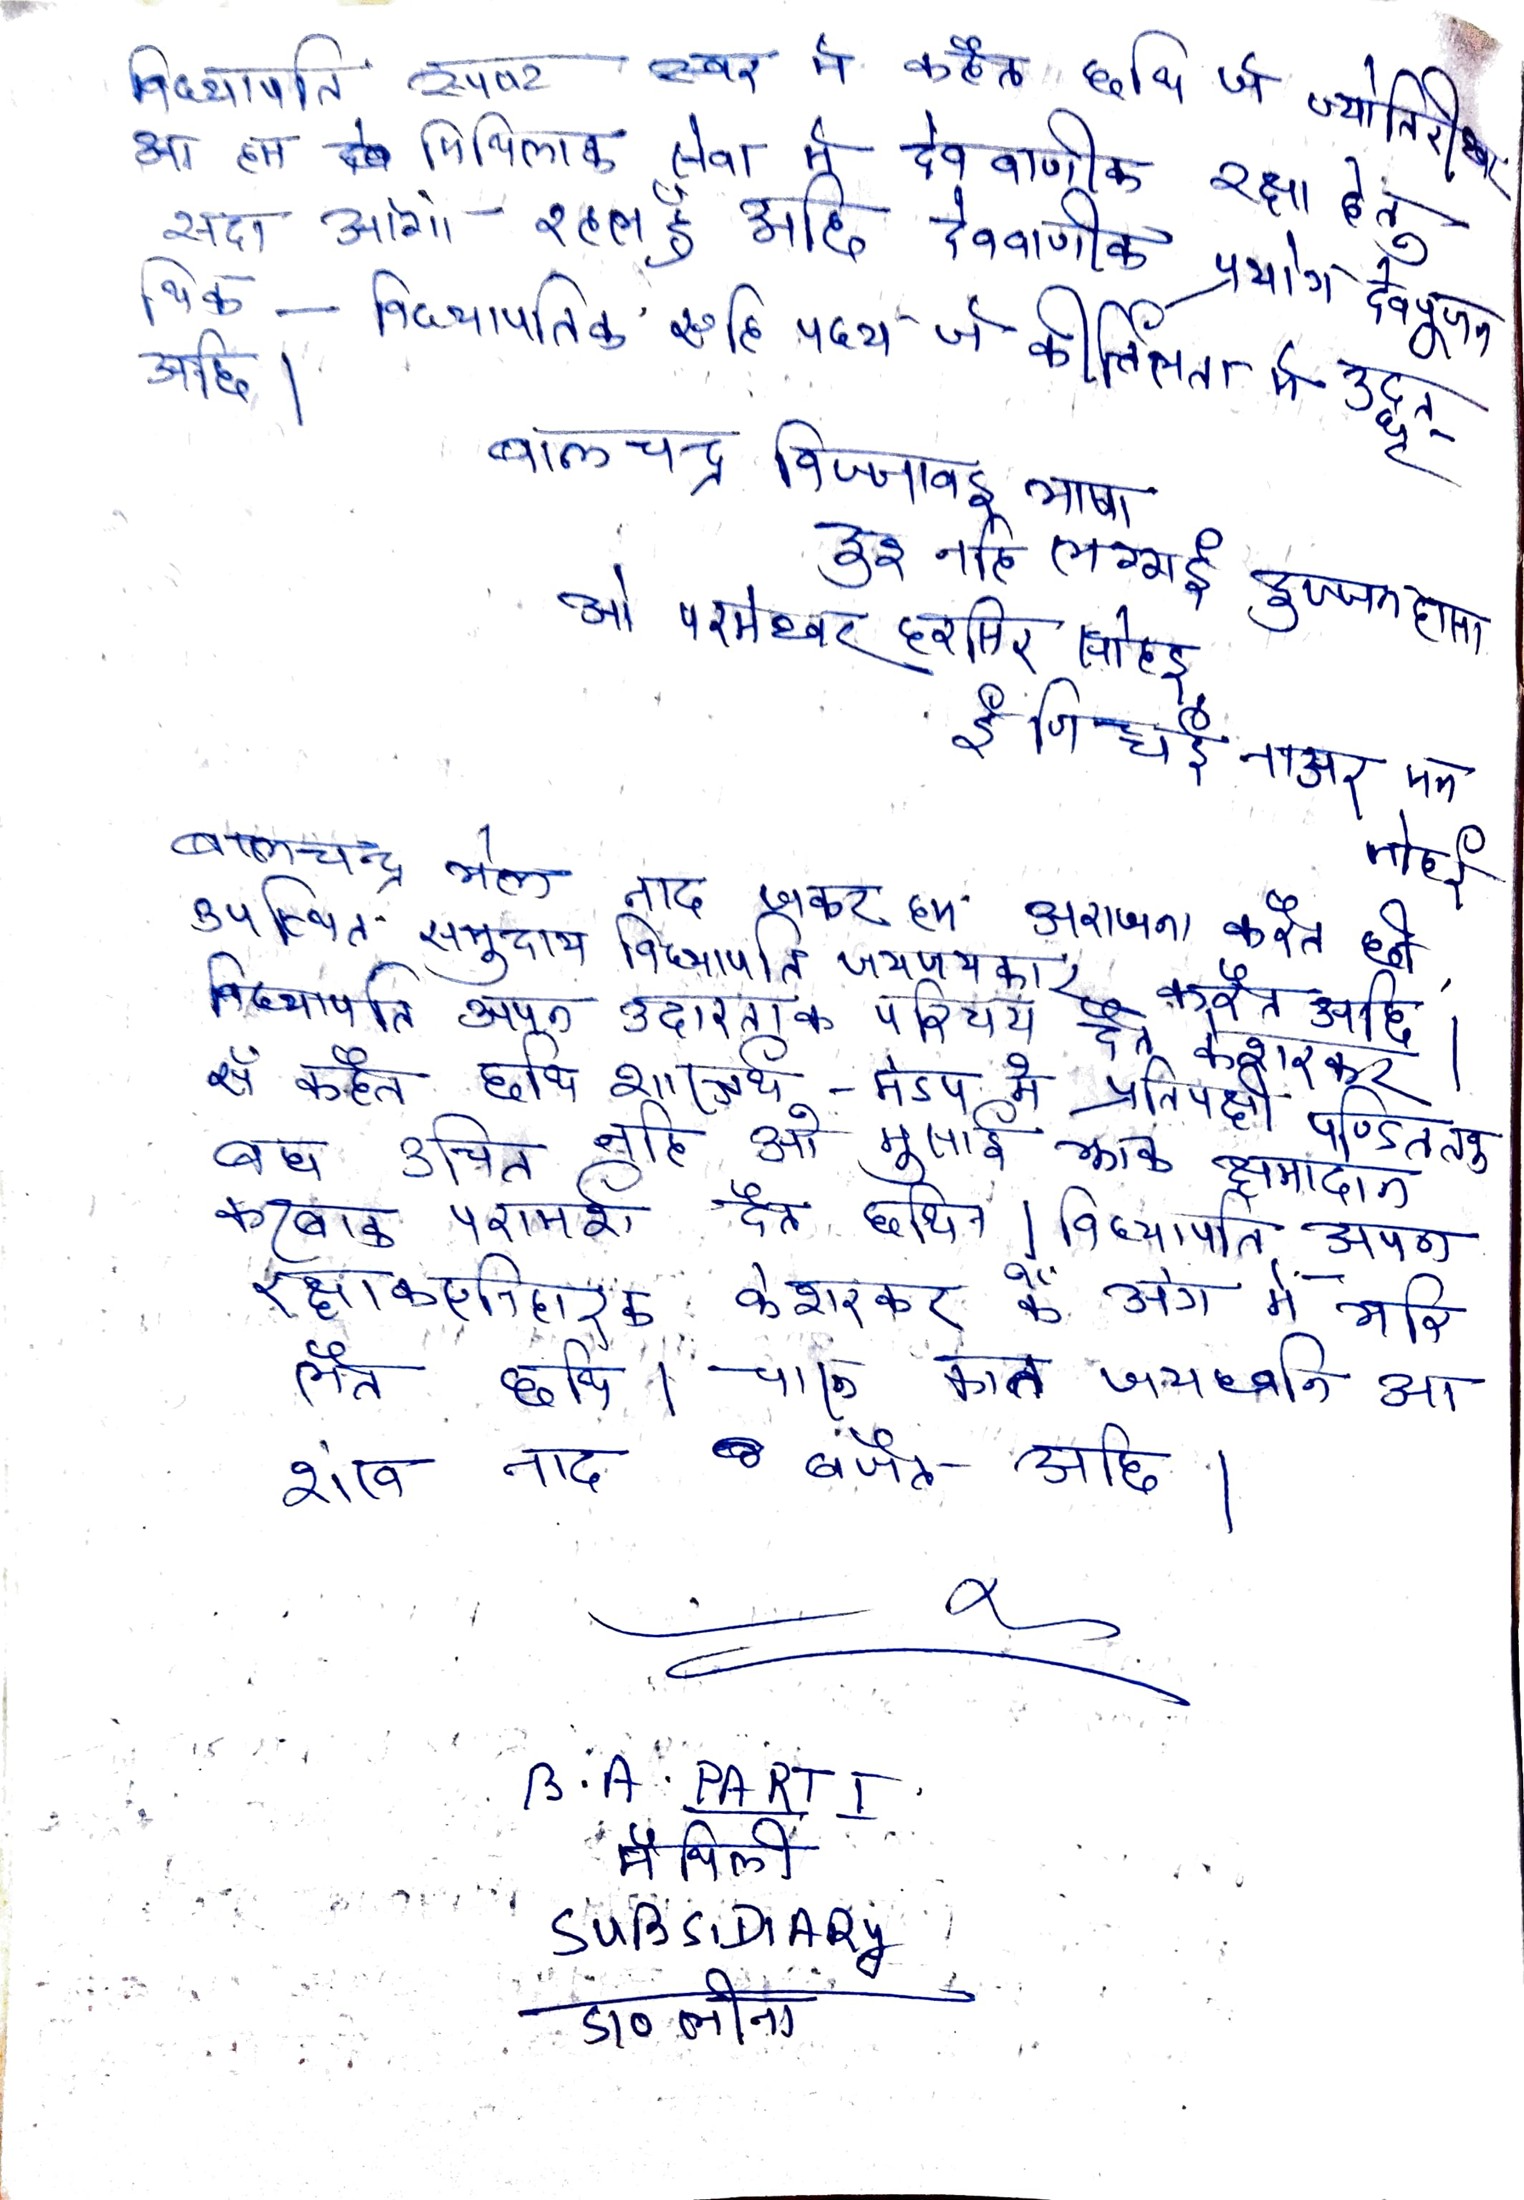 विद्यापति स्पष्ट स्वर मे कहैत छथि जे ज्योतिरीश्वर
आ हम मिथिलाक सेवा मे देव वाणीक रक्षा हेतु
सदा आगाँ रहलहुँ अछि देववाणीक प्रयोग देवपूजन
थिक — विद्यापतिक एहि पद्य जे कीर्तिलता मे उद्धृत
अछि।
बालचन्द्र विज्जावइ भाषा
दुइ नहि लग्गई दुज्जन हासा
ओ परमेश्वर हरसिर सोहइ
ई णिच्चई नाअर मन
मोहई
बालचन्द्र भेल नाद जकर हम करैत छी
उपस्थित समुदाय विद्यापति जयजयकार करैत अछि।
विद्यापति अपन उदारताक परिचय दैत केशरकर
सँ कहैत छथि शास्त्रार्थ – मंडप मे प्रतिपक्षी पण्डितक
बध उचित नहि ओ झाकेँ क्षमादान
करबाक परामर्श दैत छथिन। विद्यापति अपन
रक्षा केशरकर केँ अंग मे भरि
लैत छथि। जयध्वनि आ
शंख नाद बजैत अछि।
B.A. PART I
मैथिली
SUBSIDIARY
डा० लीना